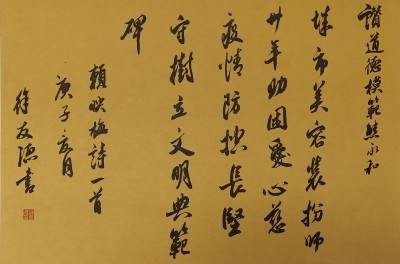 讚道德模範熊永和
城市美容裝扮師
廿年助困愛心慈
疫情防控長堅
守樹立文明典範
碑
賴映梅詩一首
庚子亥月
徐友源書